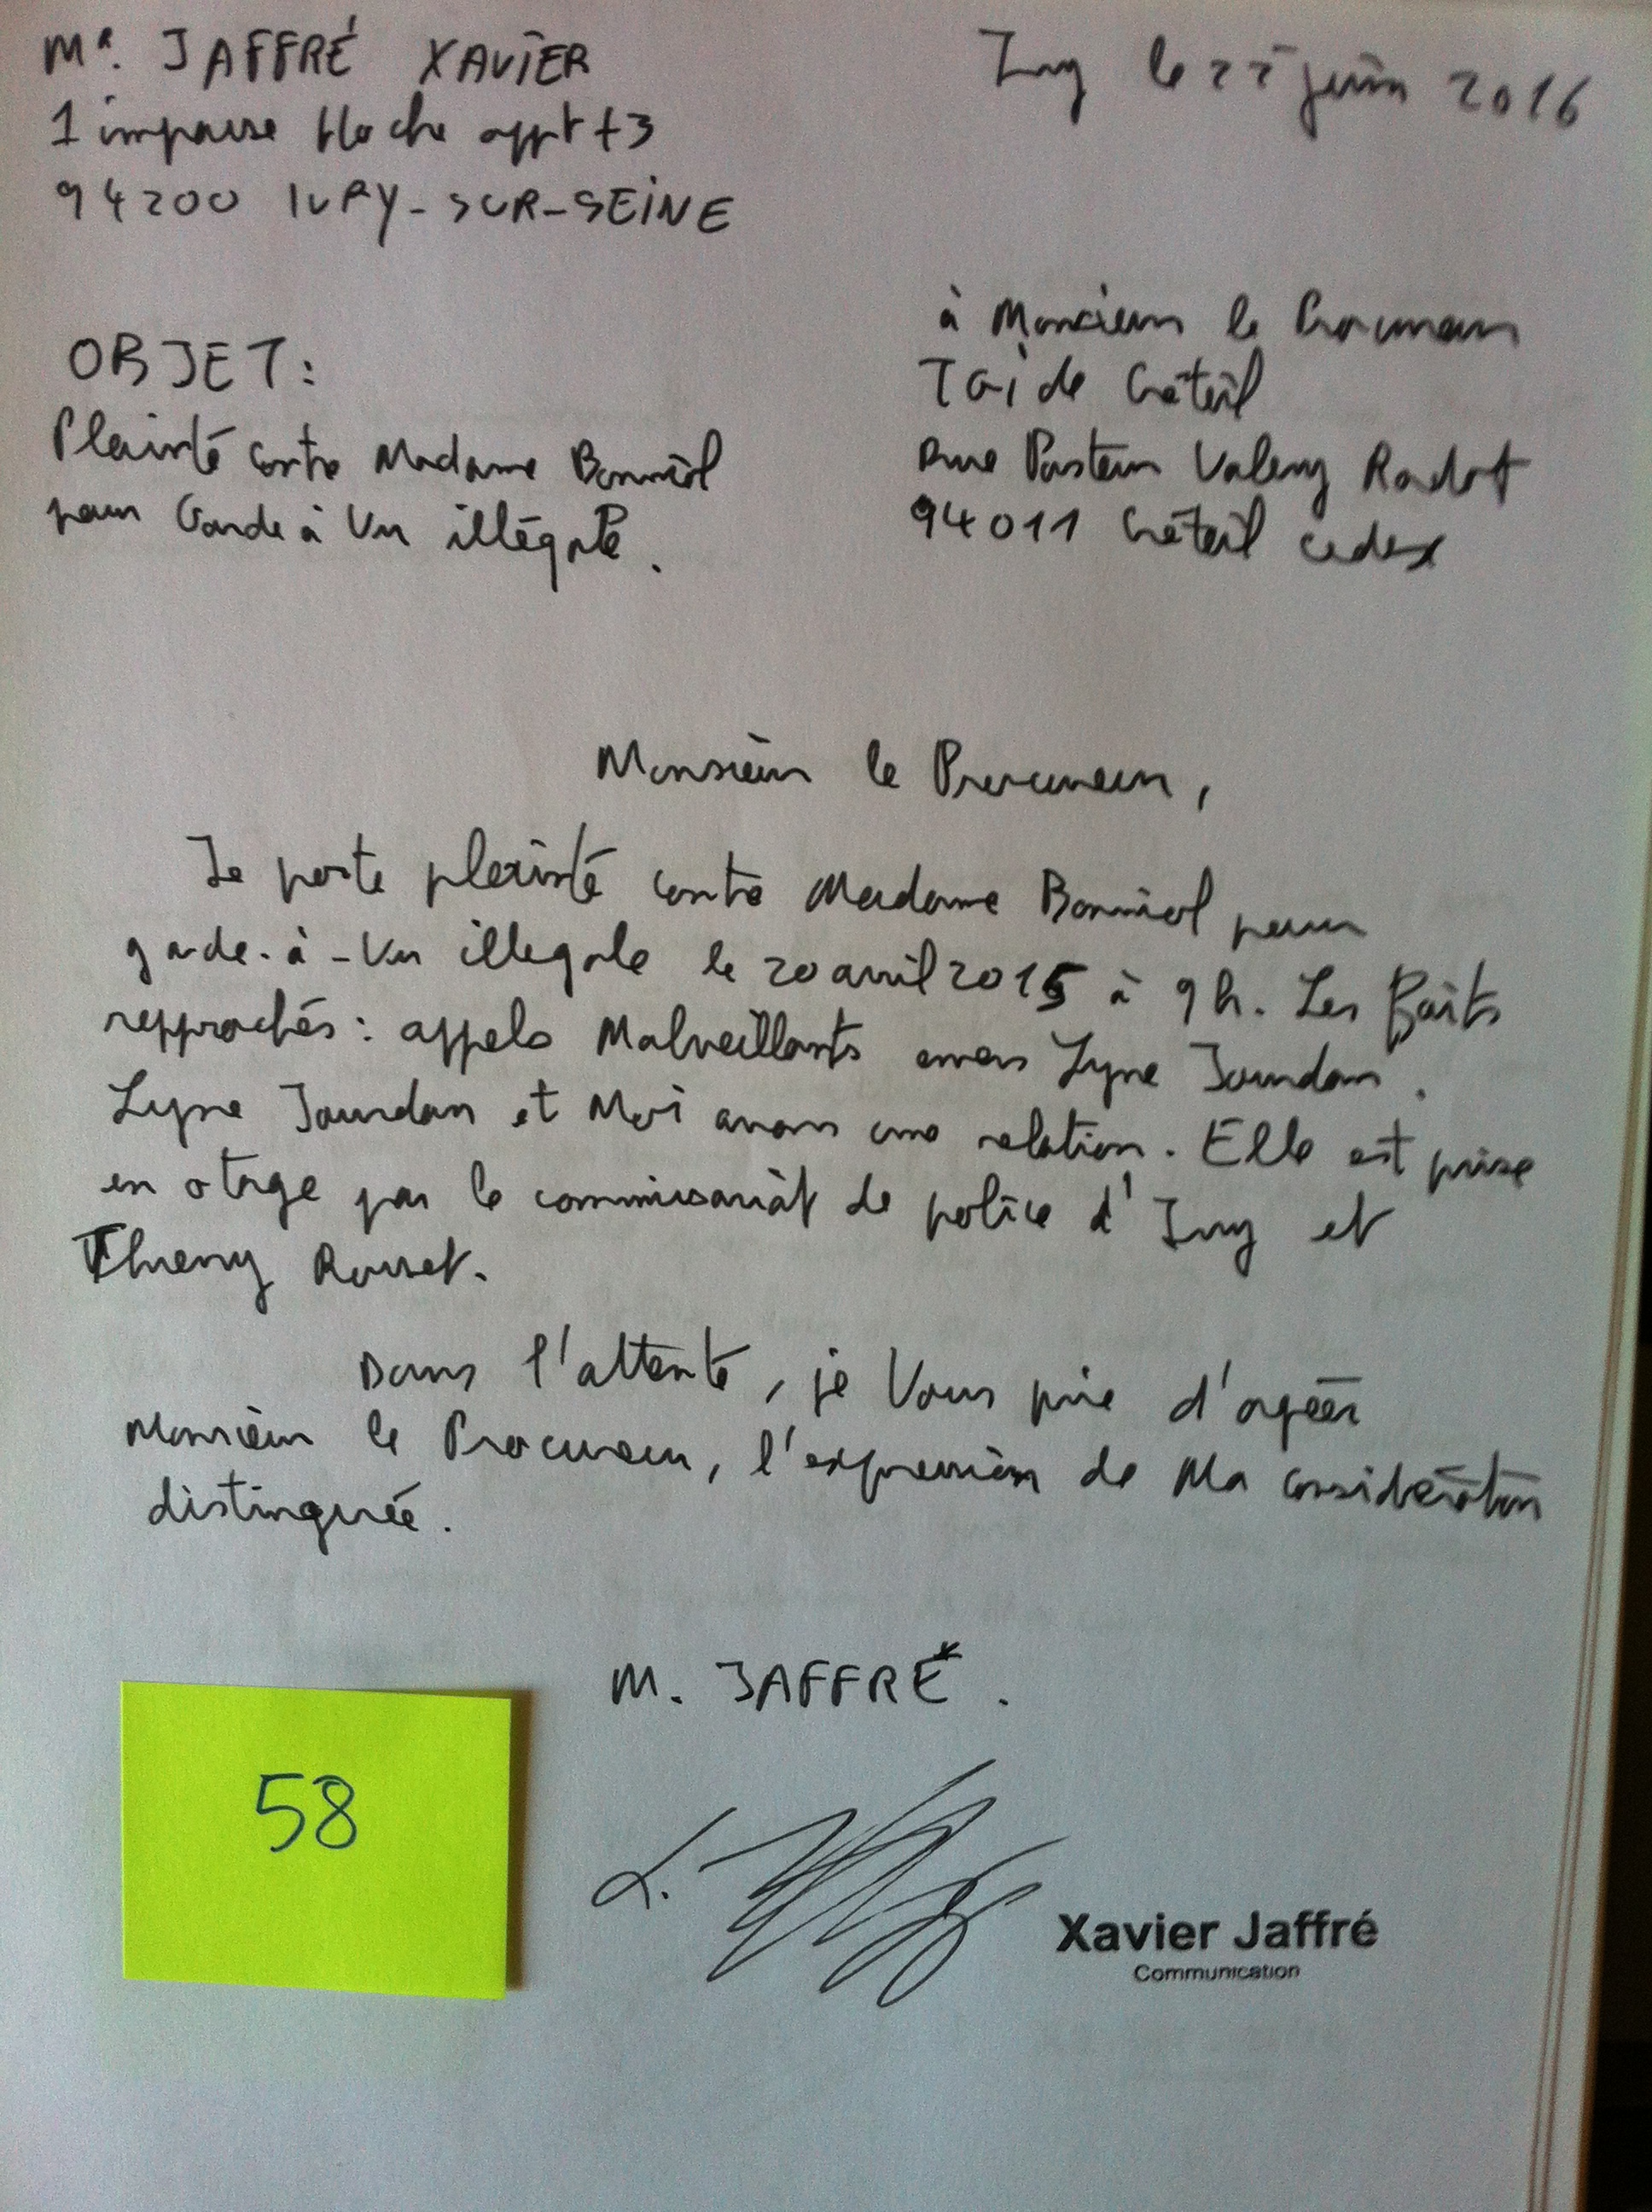 Mr. JAFFRÉ XAVIER
1 impasse Hoche appt t3
94200 IVRY-SUR-SEINE
Ivry le 22 juin 2016
OBJET:
Plainte contre Madame Bonniol
pour Garde à Vu illégale.
à Monsieur le Procureur
TGI de Créteil
rue Pasteur Valery Radot
94011 Créteil cedex
Monsieur le Procureur,
Je porte plainte contre Madame Bonniol pour
garde-à-Vu illegale le 20 avril 2015 à 9h. Les faits
reprochés: appels Malveillants envers Lyne Jourdan.
Lyne Jourdan et Moi avons une relation. Elle est prise
en otage par le commissariat de police d'Ivry et
Thierry Rousset.
Dans l'attente, je Vous prie d'agéer
Monsieur le Procureur, l'expression de Ma considération
distinguée.
M. JAFFRÉ.
58
Xavier Jaffré
Communication